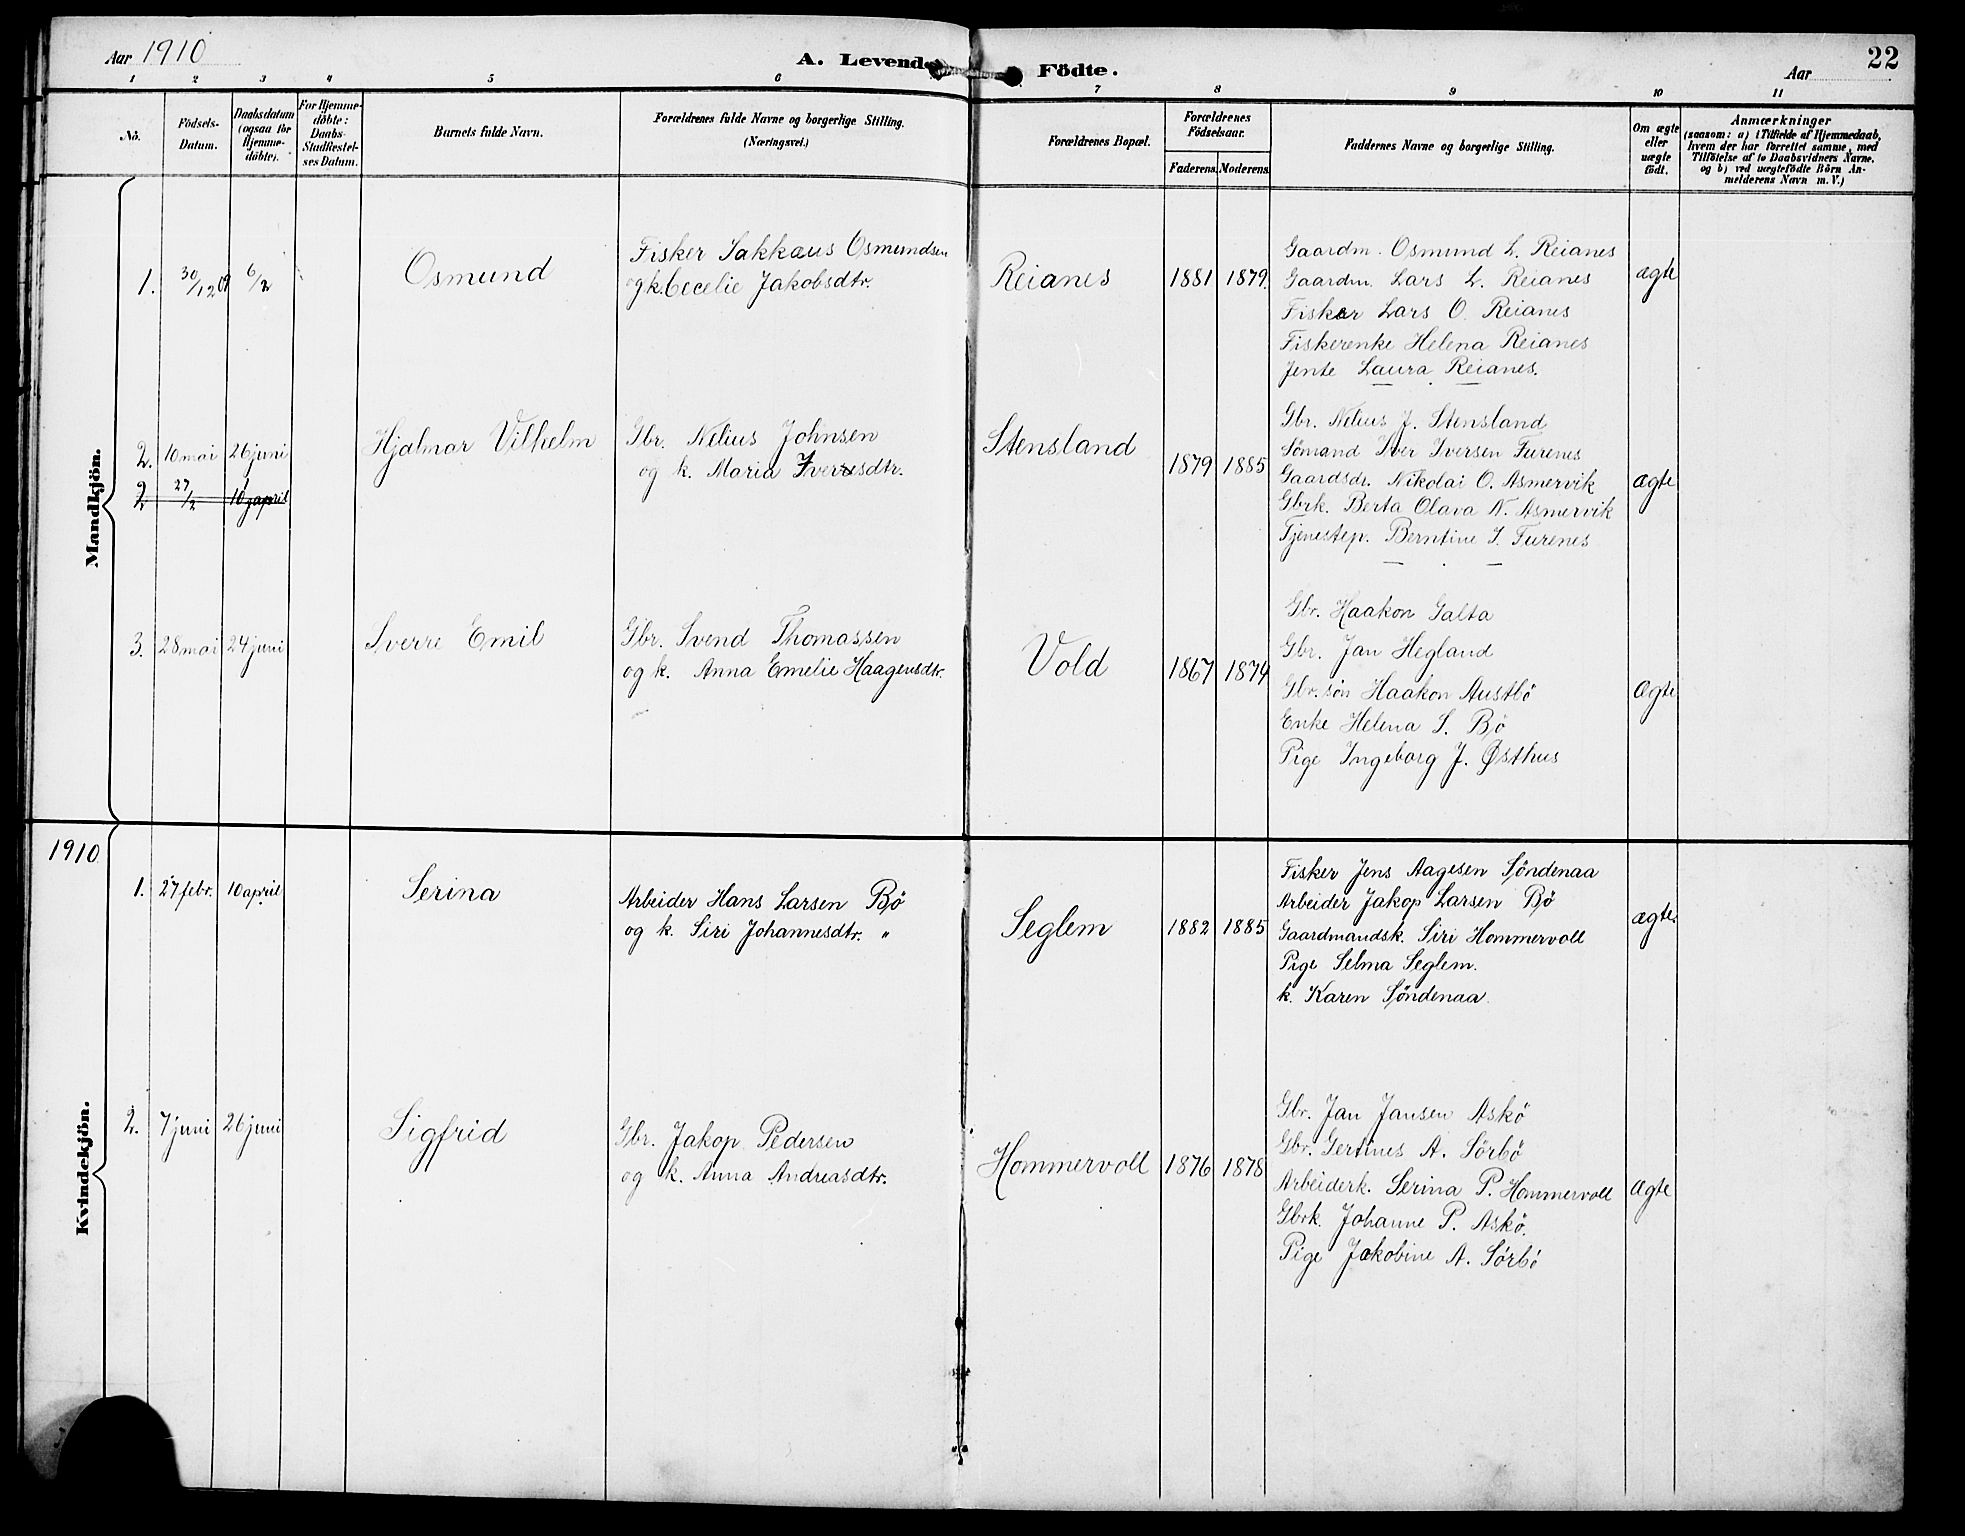 Aar 1910
A. Levende Födte.
22
Aar
1 2 3 4 5 6 7 8 9 10 11
No.
Födsels-Datum.
Daabsdatum (ogsaa for Hjemme-döbte).
For Hjemme-döbte: Daabs-Stadfæstel-ses Datum.
Barnets fulde Navn.
Forældrenes fulde Navne og borgerlige Stilling. (Næringsvei.)
Forældrenes Bopæl.
Forældrenes Födselsaar.
Faderens. Moderens.
Faddernes Navne og borgerlige Stilling.
Om ægte eller uægte födt.
Anmærkninger
(saasom: a) i Tilfælde af Hjemmedaab,
hvem der har forrettet samme, med
Tilföielse af to Daabsvidners Navne,
og b) ved uægtefödte Börn An-
melderens Navn m. V.)
Mandkjön.
1. 30/12 09 6/2
Osmund
Fisker Sakkæus Osmundsen
og k. Cecelie Jakobsdtr.
Reianes
1881 1879
Gaardm. Osmund L. Reianes
Gaardm. Lars L. Reianes
Fisker Lars O. Reianes
Fiskerenke Helena Reianes
Jente Laura Reianes.
ægte
2. 10 mai 26 juni
2 27/2 10 april
Hjalmar Vilhelm
Gbr. Nelius Johnsen
og k. Maria Iversdtr.
Stensland
1879 1885
Gbr. Nelius J. Stensland
Sömand Iver Iversen Furenes
Gaardsdr. Nikolai O. Asmervik
Gbrk. Berta Olava N. Asmervik
Tjenestep. Berntine I. Furenes
ægte
3. 28 mai 24 juni
Sverre Emil
Gbr. Svend Thomassen
og k. Anna Emelie Haagensdtr.
Vold
1867 1874
Gbr. Haakon Galta
Gbr. Jan Hegland
Gbr. sön Haakon Austbö
Enke Helena S. Bö
Pige Ingeborg J. Østhus
Ægte
1910
Kvindekjön.
1. 27 febr. 10 april
Serina
Arbeider Hans Larsen Bö
og k. Siri Johannesdtr. "
Seglem
1882 1885
Fisker Jens Aagesen Söndenaa
Arbeider Jakop Larsen Bö
Gaardmandsk. Siri Hommervoll
Pige Selma Seglem.
k. Karen Söndenaa.
ægte.
2. 7 juni 26 juni
Sigfrid
Gbr. Jakop Pedersen
og k. Anna Andreasdtr.
Hommervoll
1876 1878
Gbr. Jan Jansen Askö
Gbr. Gertines A. Sörbö
Arbeiderk. Serina P. Hommervoll
Gbrk. Johanne P. Askö.
Pige Jakobine A. Sörbö
Ægte